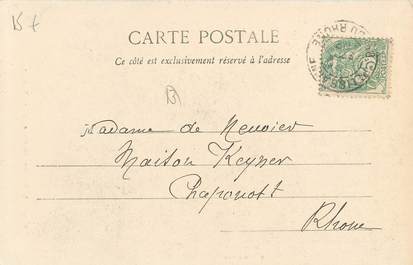 15 f
CARTE POSTALE
Ce côté est exclusivement réservé à l'adresse
Madame de Neuvier
Maison Keyner
Chaponost
Rhone